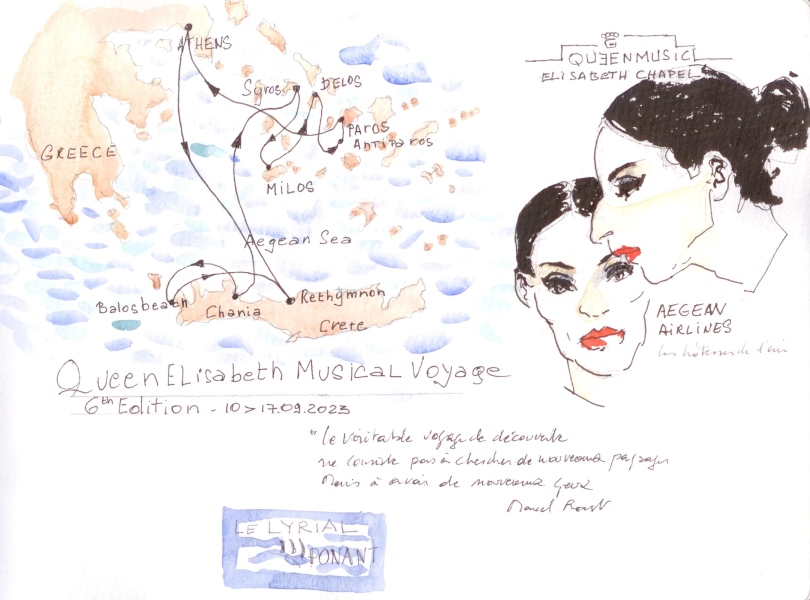 ATHENS
Syros
DELOS
PAROS
Antiparos
GREECE
MILOS
Aegean Sea
Balosbeach
Chania
Rethymnon
Crete
QUEENMUSIC
ELISABETH CHAPEL
AEGEAN
AIRLINES
les hôtesses de l'air
QueenELisabeth Musical Voyage
6th Edition - 10 > 17.09.2023
"Le véritable voyage de découverte
ne consiste pas à chercher de nouveaux paysages
Mais à avoir de nouveaux yeux
Marcel Proust
LE LYRIAL
PONANT